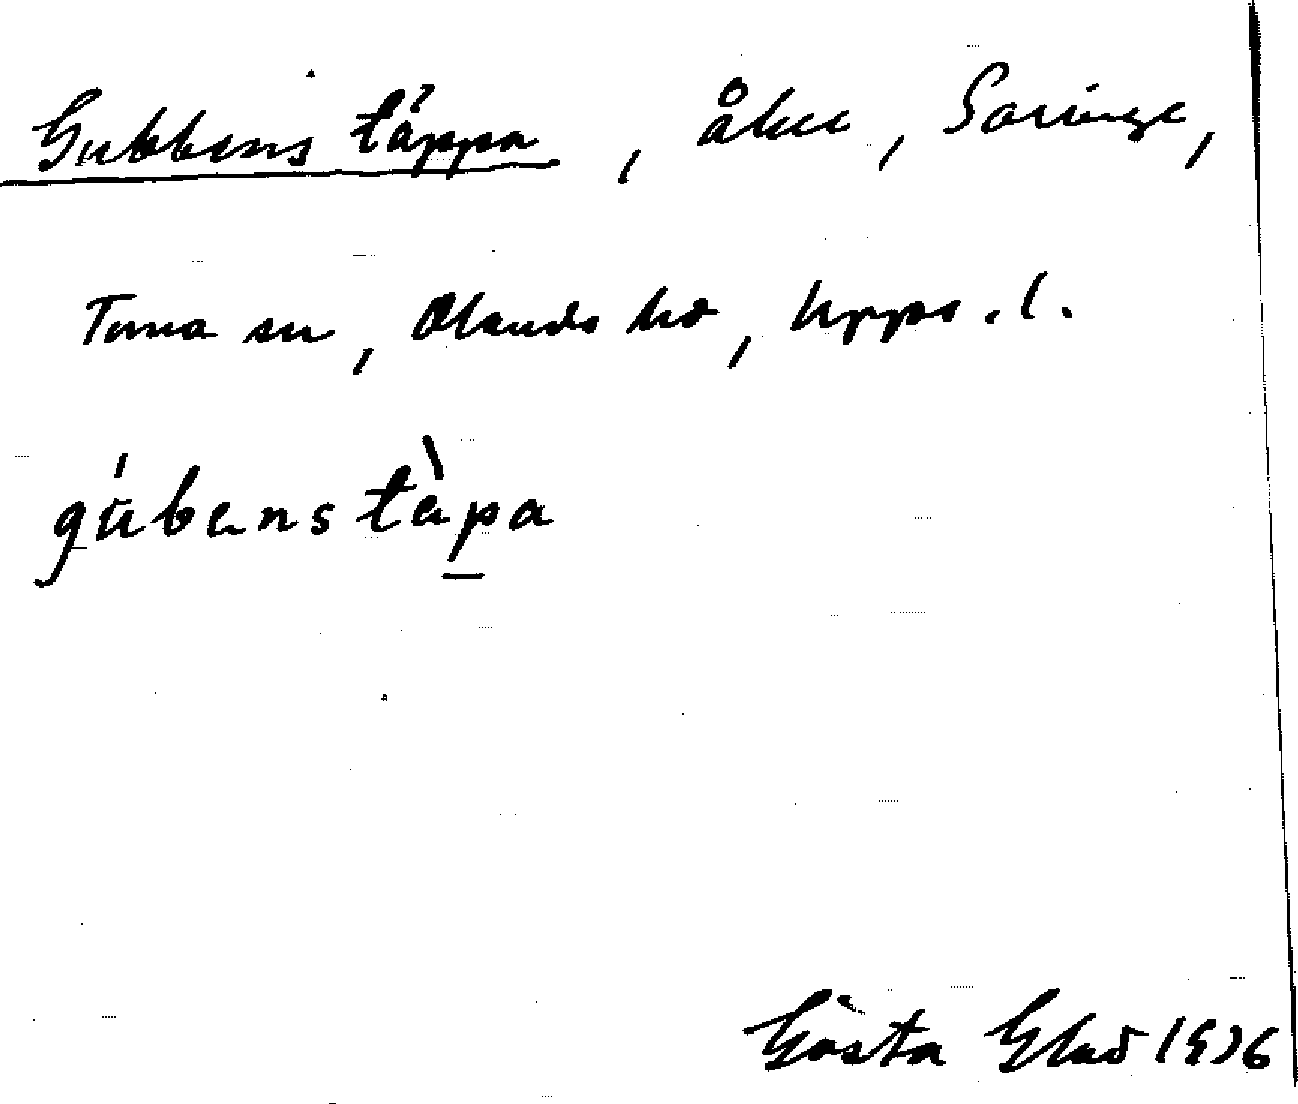 Gubbens täppa, åker, Saringe,
Tuna sn, Olands hd, Upps. l.
gúbens tàpa
Gösta Glad 1936